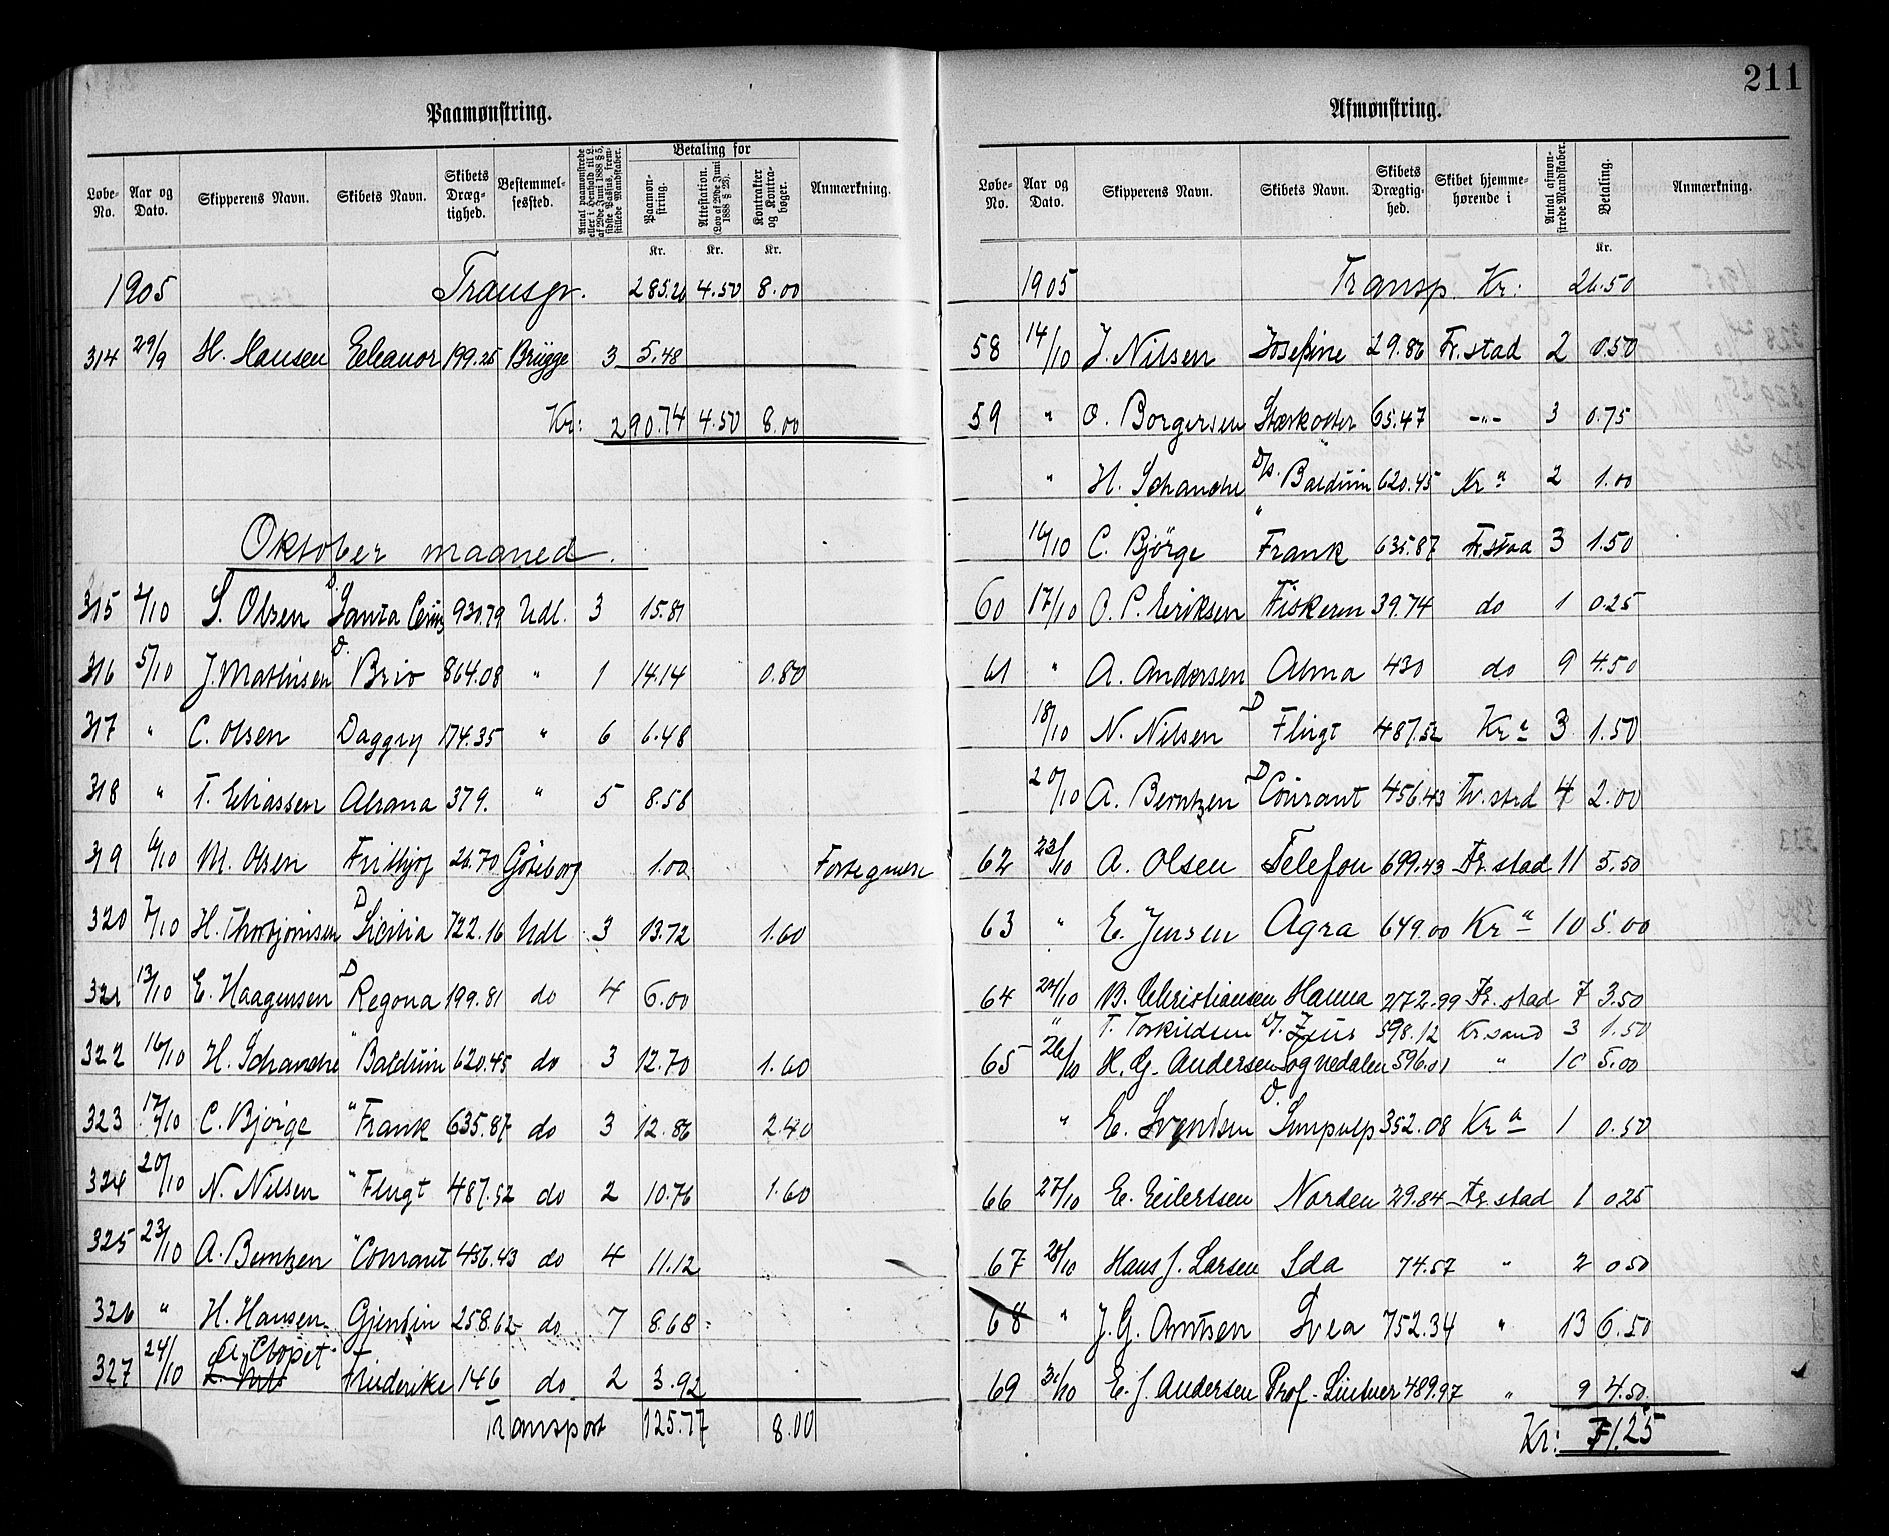 211
Paamønstring.
Løbe-No. Aar og Dato. Skipperens Navn. Skibets Navn. Skibets Dræg-tighed. Bestemmel-sessted. Antal paamønstrede eller i Henhold til L. af 29de Juni 1888 § 5, sidste Passus, frem-stillede Mandskaber. Betaling for Paamøn-string. Attestation. (Lov af 29de Juni 1888 § 23). Kontrakter og Kontra-bøger. Anmærkning.
Kr. Kr. Kr.
1905 Transp. 285.26 4.50 8.00
314 29/9 H. Hansen Eleanor 199.25 Brügge 3 5.48
Kr: 290.74 4.50 8.00
Oktober maaned.
315 2/10 S. Olsen D. Santa Cruz 930.79 Udl. 3 15.81
316 5/10 J. Mathisen D. Brio 864.08 " 1 14.14 0.80
317 " C. Olsen Daggry 174.35 " 6 6.48
318 " T. Eliassen Alrana 379. " 5 8.58
319 6/10 M. Olsen Fridtjof 26.70 Göteborg 1.00 Fortegnelse
320 7/10 H. Thorbjörnsen D Sicilia 722.16 Udl 3 13.72 1.60
321 13/10 E. Haagensen D Regona 199.81 do 4 6.00
322 16/10 H. Schanche " Balduin 620.45 do 3 12.70 1.60
323 17/10 C. Bjørge " Frank 635.87 do 3 12.86 2.40
324 20/10 N. Nilsen " Flugt 487.52 do 2 10.76 1.60
325 23/10 A. Berntzen " Courant 456.43 do 4 11.12
326 " H. Hansen Gjendin 258.62 do 7 8.68
327 24/10 Friederike 146 do 2 3.92
Transport 125.77 8.00
Afmønstring.
Løbe-No. Aar og Dato. Skipperens Navn. Skibets Navn. Skibets Drægtig-hed. Skibet hjemme-hørende i Antal afmøn-strede Mandskaber. Betaling. Anmærkning.
Kr.
1905 Transp. Kr: 26.50
58 14/10 J. Nilsen Josefine 29.86 Fr.stad 2 0.50
59 " O. Borgersen Stærkodder 65.47 -"- 3 0.75
" H. Schanche D/s. Balduin 620.45 Kr a 2 1.00
16/10 C. Bjørge " Frank 635.87 Fr.stad 3 1.50
60 17/10 O. P. Eriksen Fiskeren 39.74 do 1 0.25
61 " A. Andersen Alma 430 do 9 4.50
18/10 N. Nilsen D Flugt 487.52 Kr a 3 1.50
20/10 A. Berntzen D Courant 456.43 Fr.stad 4 2.00
62 23/10 A. Olsen Telefon 699.43 Fr.stad 11 5.50
63 " E. Jensen Agra 649.00 Kr a 10 5.00
64 24/10 B. Christiansen Hanna 272.99 Fr.stad 7 3.50
" T. Torkildsen D/. Zeus 598.12 Kr.sand 3 1.50
65 26/10 H. G. Andersen Sognedalen 596.01 " 10 5.00
" E. Svendsen D. Sunpulp 352.08 Kr a 1 0.50
66 27/10 E. Eilertsen Norden 29.84 Fr.stad 1 0.25
67 28/10 Hans J. Larsen Ida 74.57 " 2 0.50
68 " J. G. Arntsen Svea 752.34 " 13 6.50
69 31/10 E. J. Andersen Prof. Lintner 489.97 " 9 4.50
Kr: 71.25